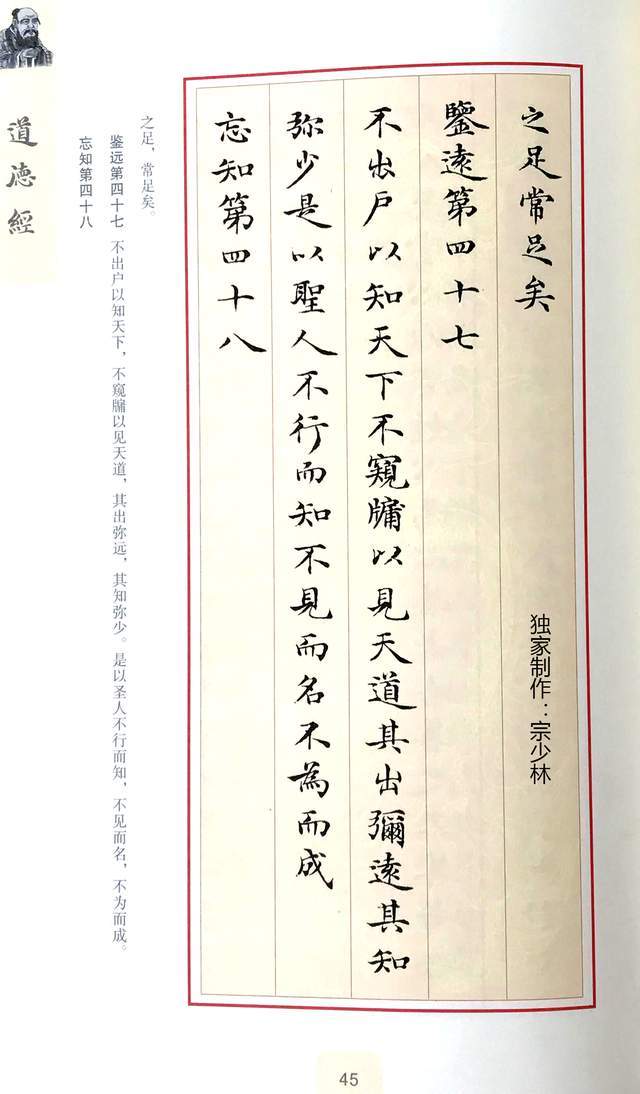 之足常足矣
鑒遠第四十七
不出戶以知天下不窺牖以見天道其出彌遠其知
弥少是以聖人不行而知不見而名不為而成
忘知第四十八
独家制作：宗少林
之足，常足矣。
鉴远第四十七 不出户以知天下，不窥牖以见天道，其出弥远，其知弥少。是以圣人不行而知，不见而名，不为而成。
忘知第四十八
道德經
45